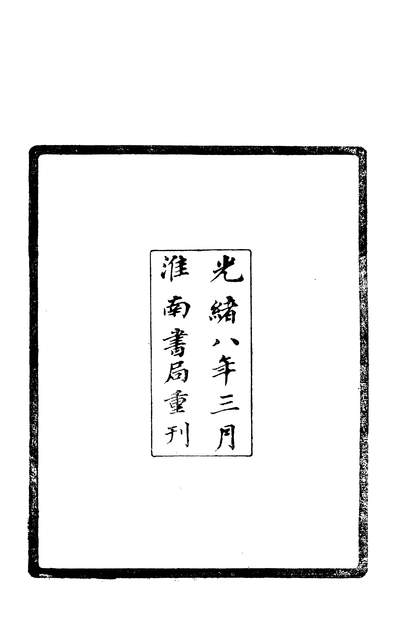 光緒八年三月
淮南書局重刊